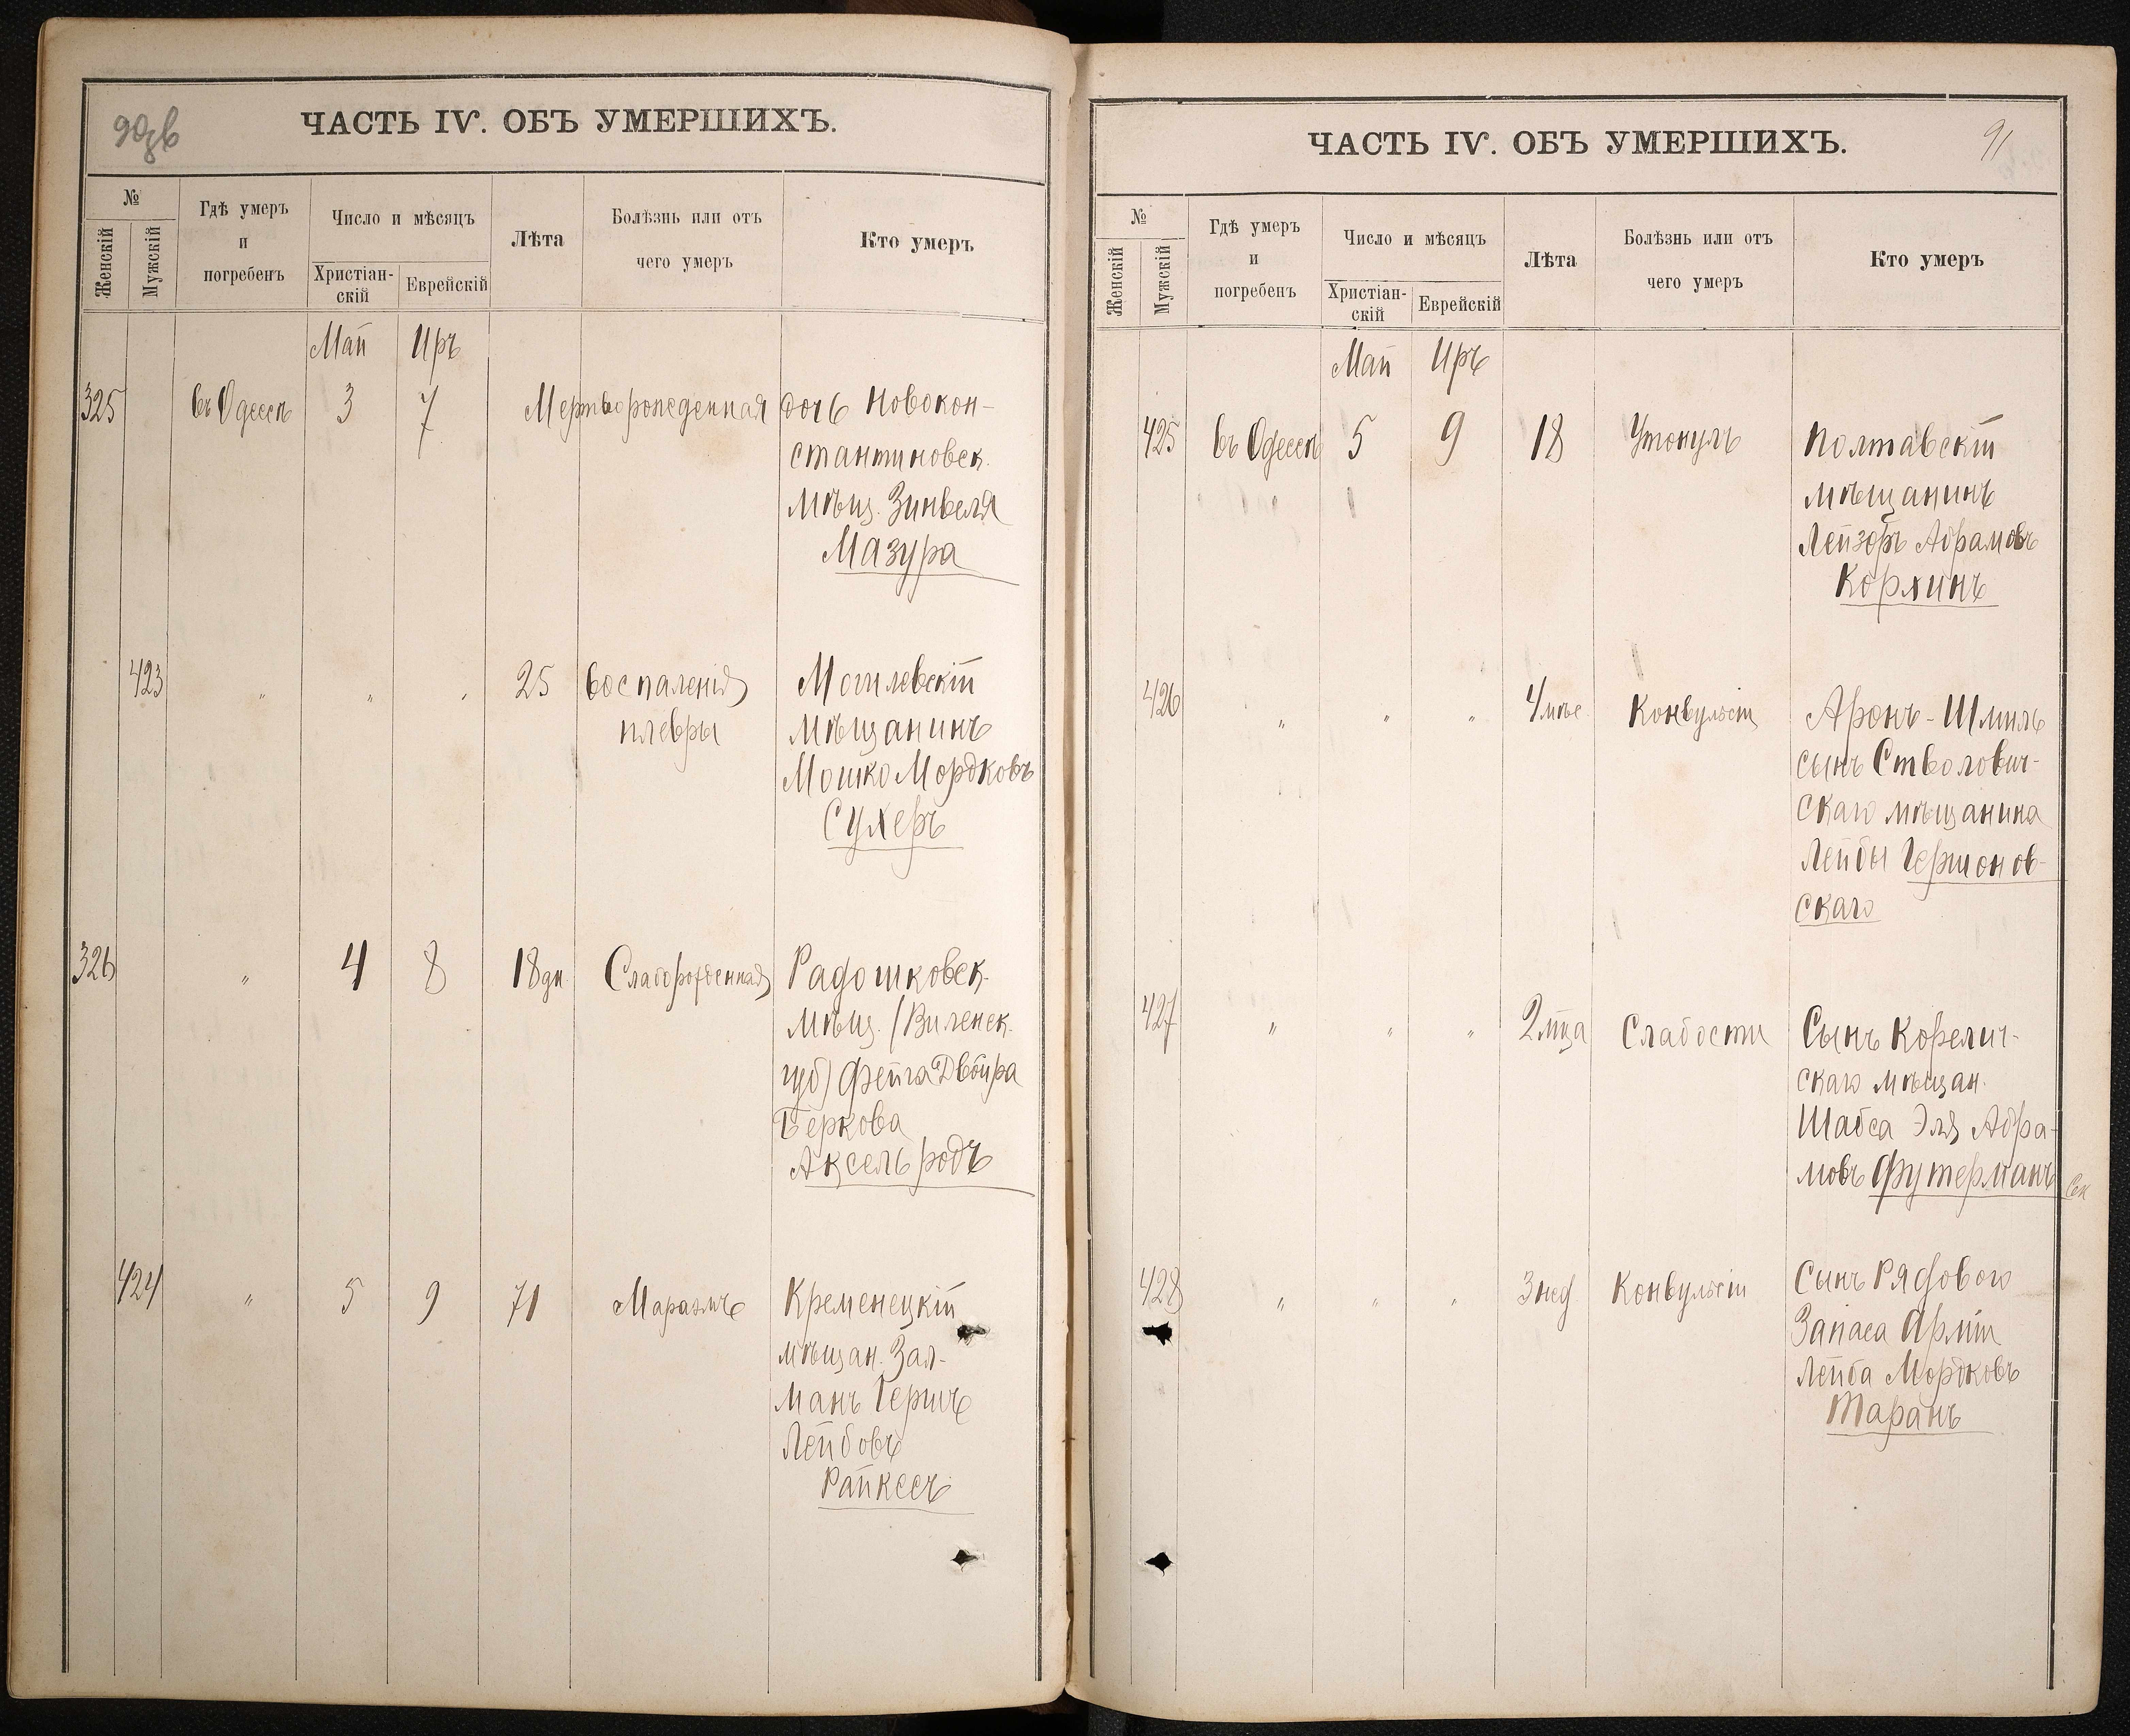 90об
ЧАСТЬ IV. ОБЪ УМЕРШИХЪ.
№
Женскій
Мужскій
Гдѣ умеръ
и
погребенъ
Число и мѣсяцъ
Христіан-
скій
Еврейскій
Лѣта
Болѣзнь или отъ
чего умеръ
Кто умеръ
Май Иръ
325 въ Одессѣ 3 7 Мертворожденная дочь Новокон-
стантиновск.
мѣщ. Зинвеля
Мазура
423 " " " 25 Воспаленія Могилевскій
плевры мѣщанинъ
Мошко Мордковъ
Сухеръ
326 " 4 8 18 дн. Слаборожденная Радошковск.
мѣщ. (Виленск.
губ) Фейга Двойра
Беркова
Аксельродъ
424 " 5 9 71 Маразмъ Кременецкій
мѣщан. Зал-
манъ Гершъ
Лейбовъ
Райкесъ
ЧАСТЬ IV. ОБЪ УМЕРШИХЪ.
91
№
Женскій
Мужскій
Гдѣ умеръ
и
погребенъ
Число и мѣсяцъ
Христіан-
скій
Еврейскій
Лѣта
Болѣзнь или отъ
чего умеръ
Кто умеръ
Май Иръ
425 въ Одессѣ 5 9 18 Утонулъ Полтавскій
мѣщанинъ
Лейзеръ Абрамовъ
Корхинъ
426 " " " 4 мѣс. Конвульсіи Аронъ-Шмиль
сынъ Стволович-
скаго мѣщанина
Лейбы Гершонов-
скаго
427 " " " 2 мца Слабости Сынъ Корелич-
скаго мѣщан.
Шабса Эля Абра-
мовъ Футерманъ
428 " " " 3 нед. Конвульсіи Сынъ Рядового
Запаса Арміи
Лейба Мордковъ
Таранъ